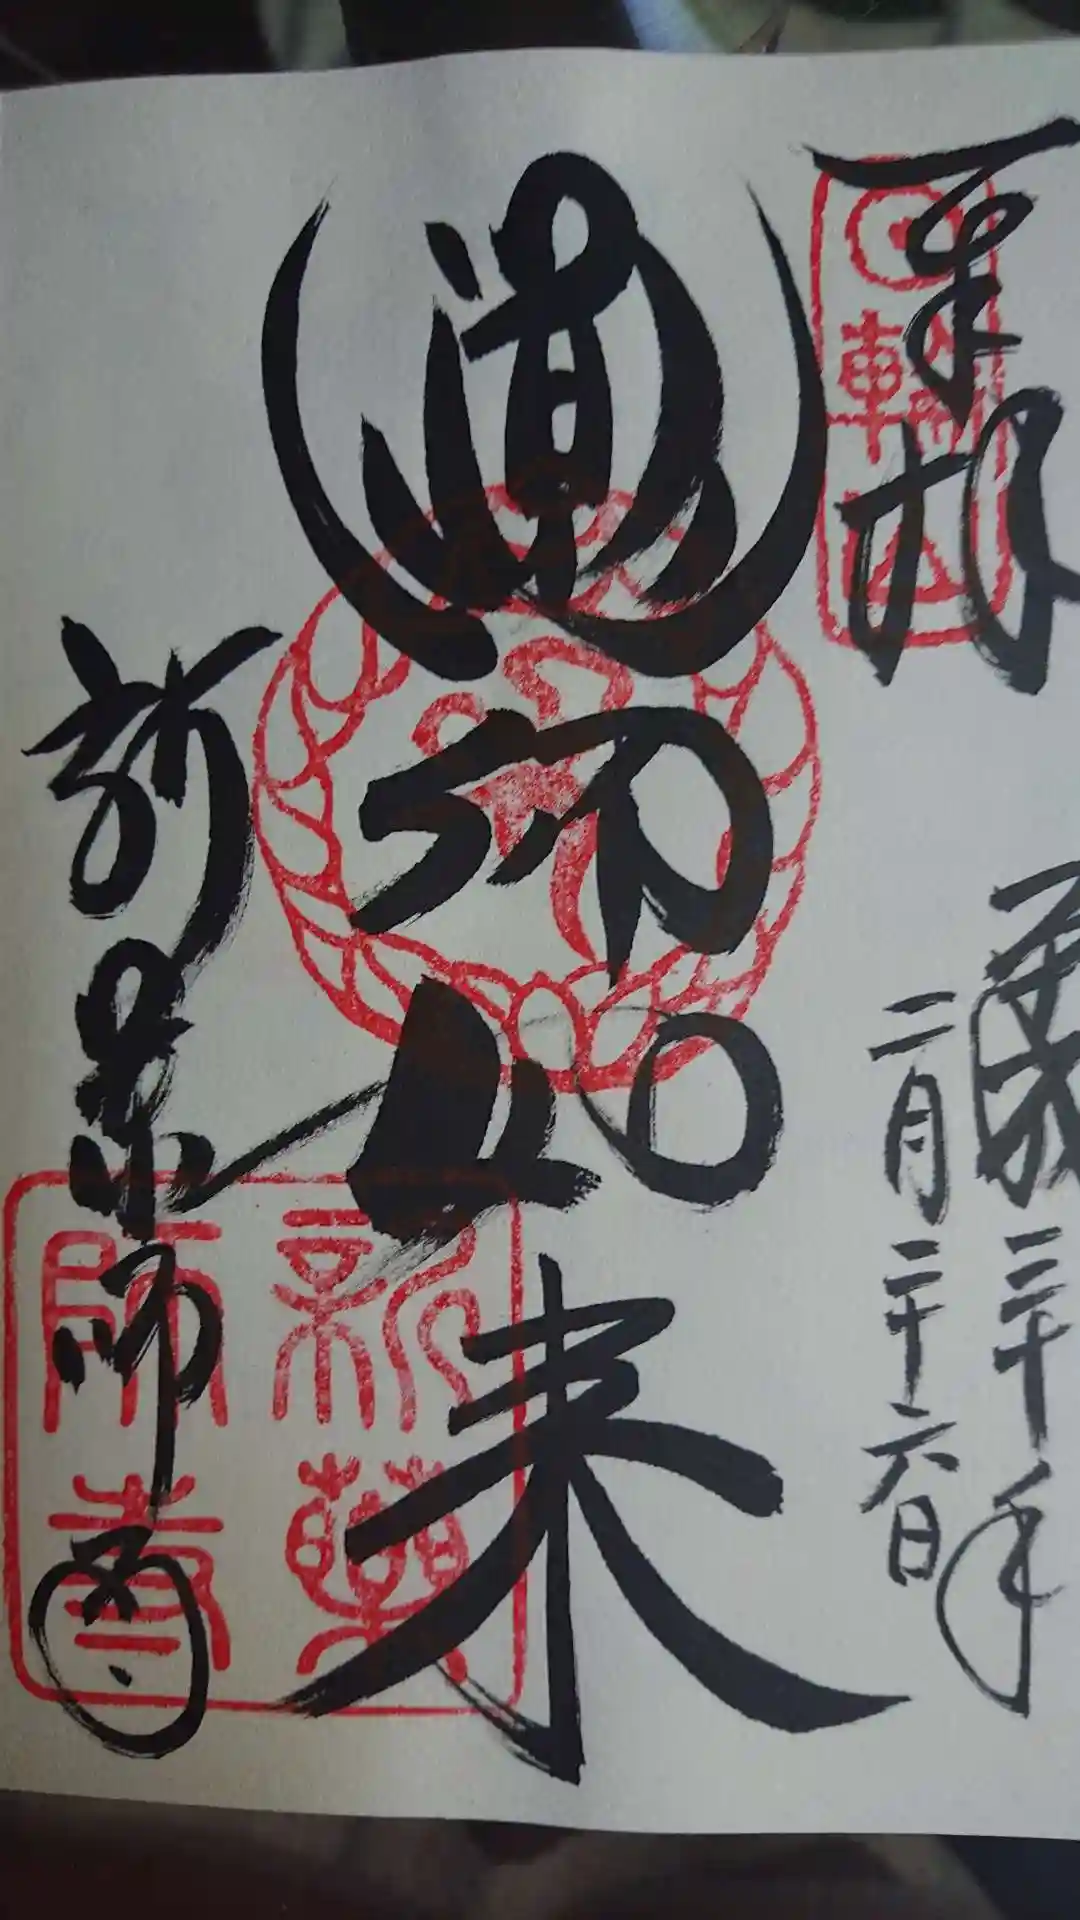 奉拝
日輪山
平成三十年
二月二十六日
薬師如来
新薬師寺
新薬師寺